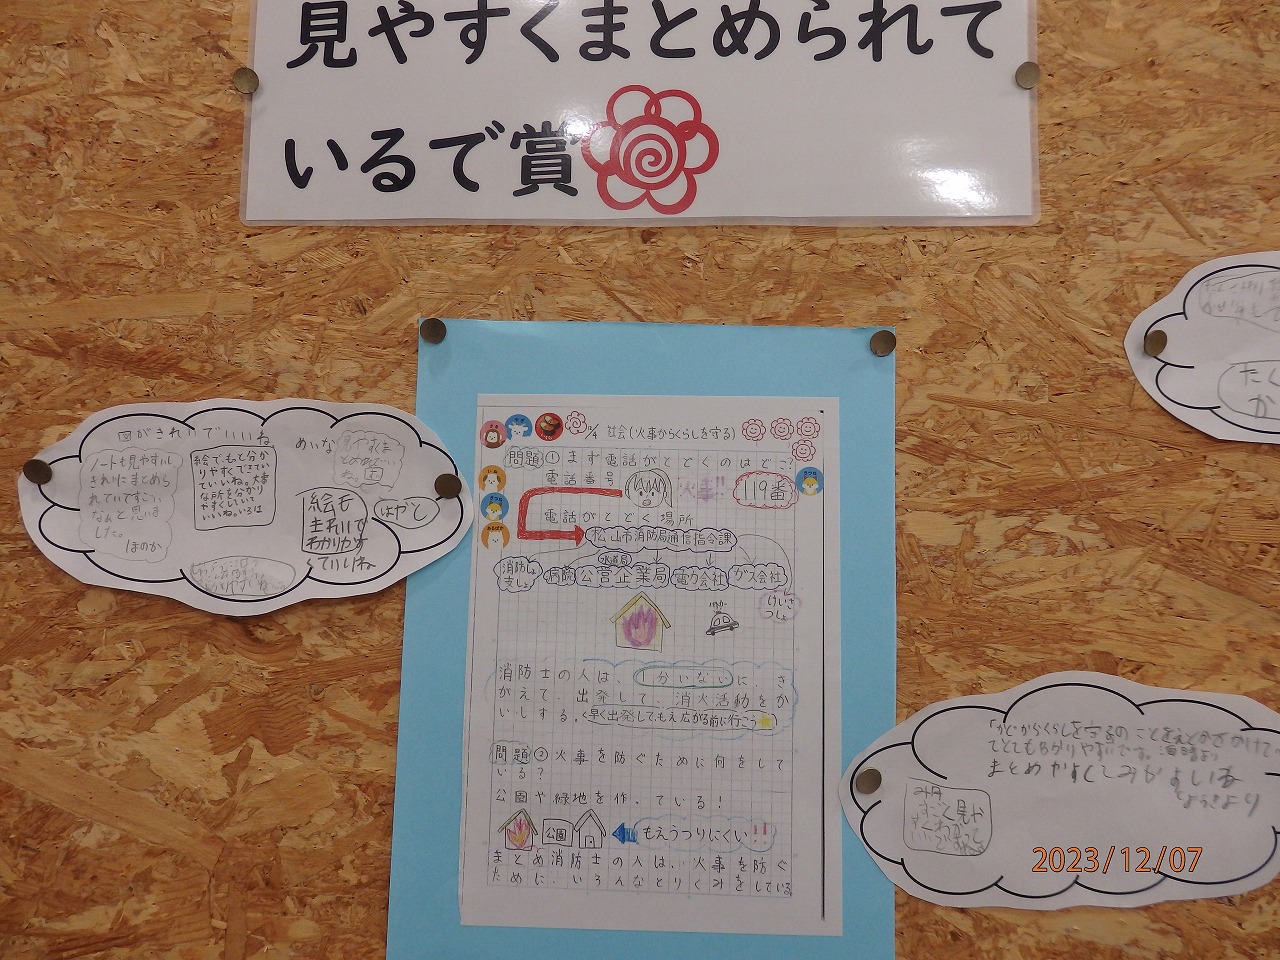 見やすくまとめられて
いるで賞
図がきれいでいいね
ノートも見やすいし
きれいにまとめら
れていてすごい
なぁと思いま
した。
ほのか
絵でもて分か
りやすくできてい
ていいね。大事
な所を分かり
やすくしいて
いいね。いろは
めいな
見やすくま
絵も
きれいで
わかりやす
ていいね
はやと
10/4 社会(火事からくらしを守る)
問題①まず電話がとどくのはどこ?
電話番号
火事!!
119番
電話がとどく場所
松山市消防局通信指令課
水道局
消防しょ
支しょ
病院
公営企業局
電力会社
ガス会社
けいさ
つしょ
パトカー
消防士の人は、1分いないに、き
がえて、出発して、消火活動をか
いしする。<早く出発して、もえ広がる前に行こう>
問題②火事を防ぐために何をして
いる?
公園や緑地を作っている!
公園
もえうつりにくい!!
まとめ消防士の人は、火事を防ぐ
ために、いろんなとりくみをしている。
たく
か
「かじからくらしを守るの ことをえとかでかけて
てとてもわかりやすいです。
まとめかすくてみやすいね
より
見や
2023/12/07